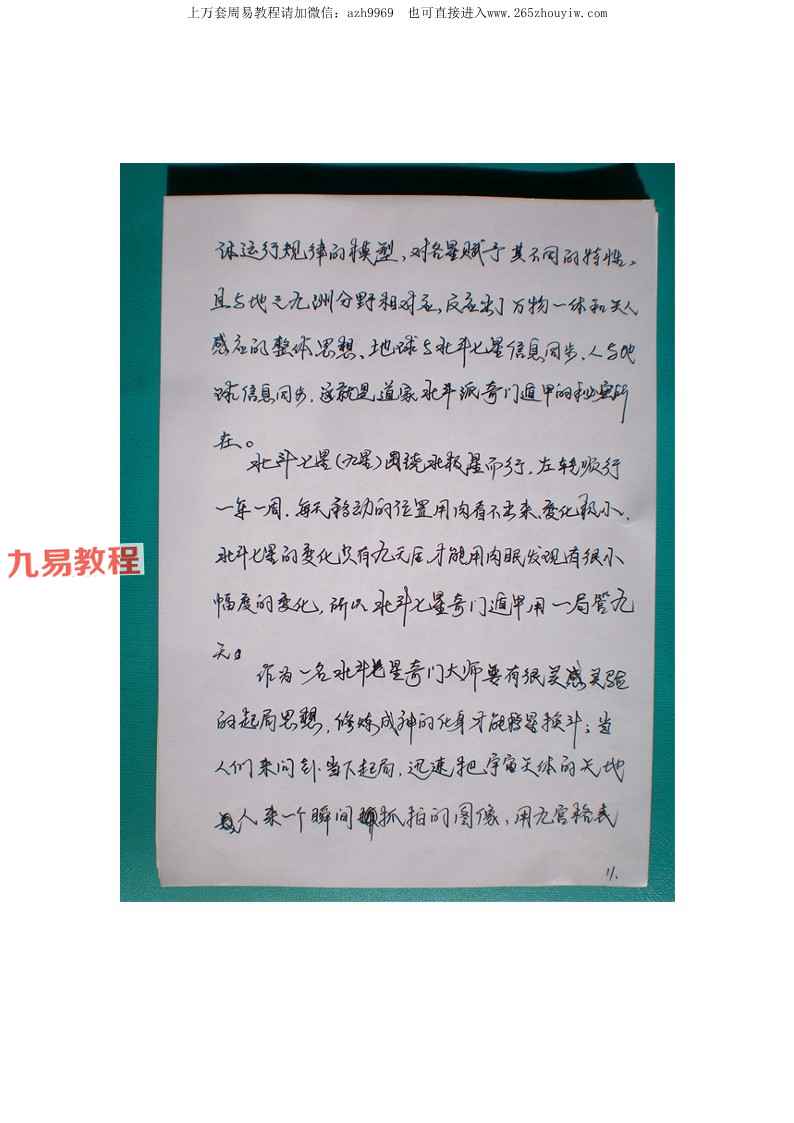 上万套周易教程请加微信：azh9969 也可直接进入www.265zhouyiw.com
体运行规律的模型、对各星赋予其不同的特性。
且与地之九洲分野相对应，反应出了万物一体和天人
感应的整体思想、地球与北斗七星信息同步、人与地
球信息同步，这就是道家北斗派奇门遁甲的秘密所
在。
北斗七星(九星)围绕北极星而行，左转顺行
一年一周，每天移动的位置用肉看不出来、变化极小、
九易教程
北斗七星的变化只有九天后才能用肉眼发现有很小
幅度的变化，所以北斗七星奇门遁甲用一局管九
天。
作为一名北斗七星奇门大师要有很灵感灵验
的起局思想，修炼成神的化身才能移星换斗；当
人们来问卦当下起局，迅速把宇宙天体的天地
人来一个瞬间抓拍的图像、用九宫格表
11.